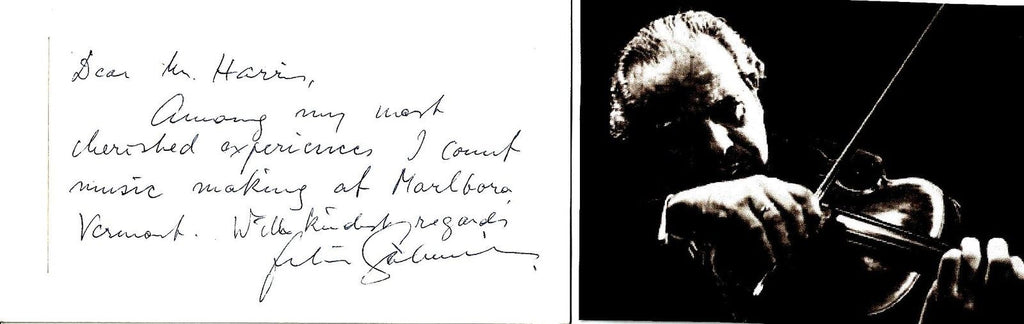 Dear Mr. Harris,
Among my most
cherished experiences I count
music making at Marlboro,
Vermont. With kindest regards
Felix Galimir